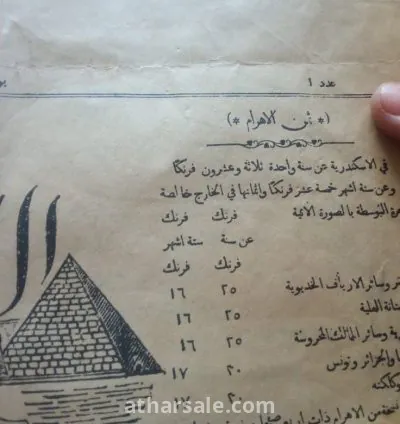 عدد ١
(* ثمن الاهرام *)
في الاسكندرية عن سنة واحدة ثلاثة وعشرون فرنكًا
وعن ستة اشهر خمسة عشر فرنكًا واثمانها في الخارج خالصة
اجرة البوسطة بالصورة الاتية
فرنك فرنك
عن سنة ستة اشهر
فرنك فرنك
وسائر الارياف الخديوية ٢٥ ١٦
العلية
وسائر الممالك المحروسة ٢٥ ١٦
والجزائر وتونس
٢٠ ١٧
الاهرام ذات اربع
atharsale.com